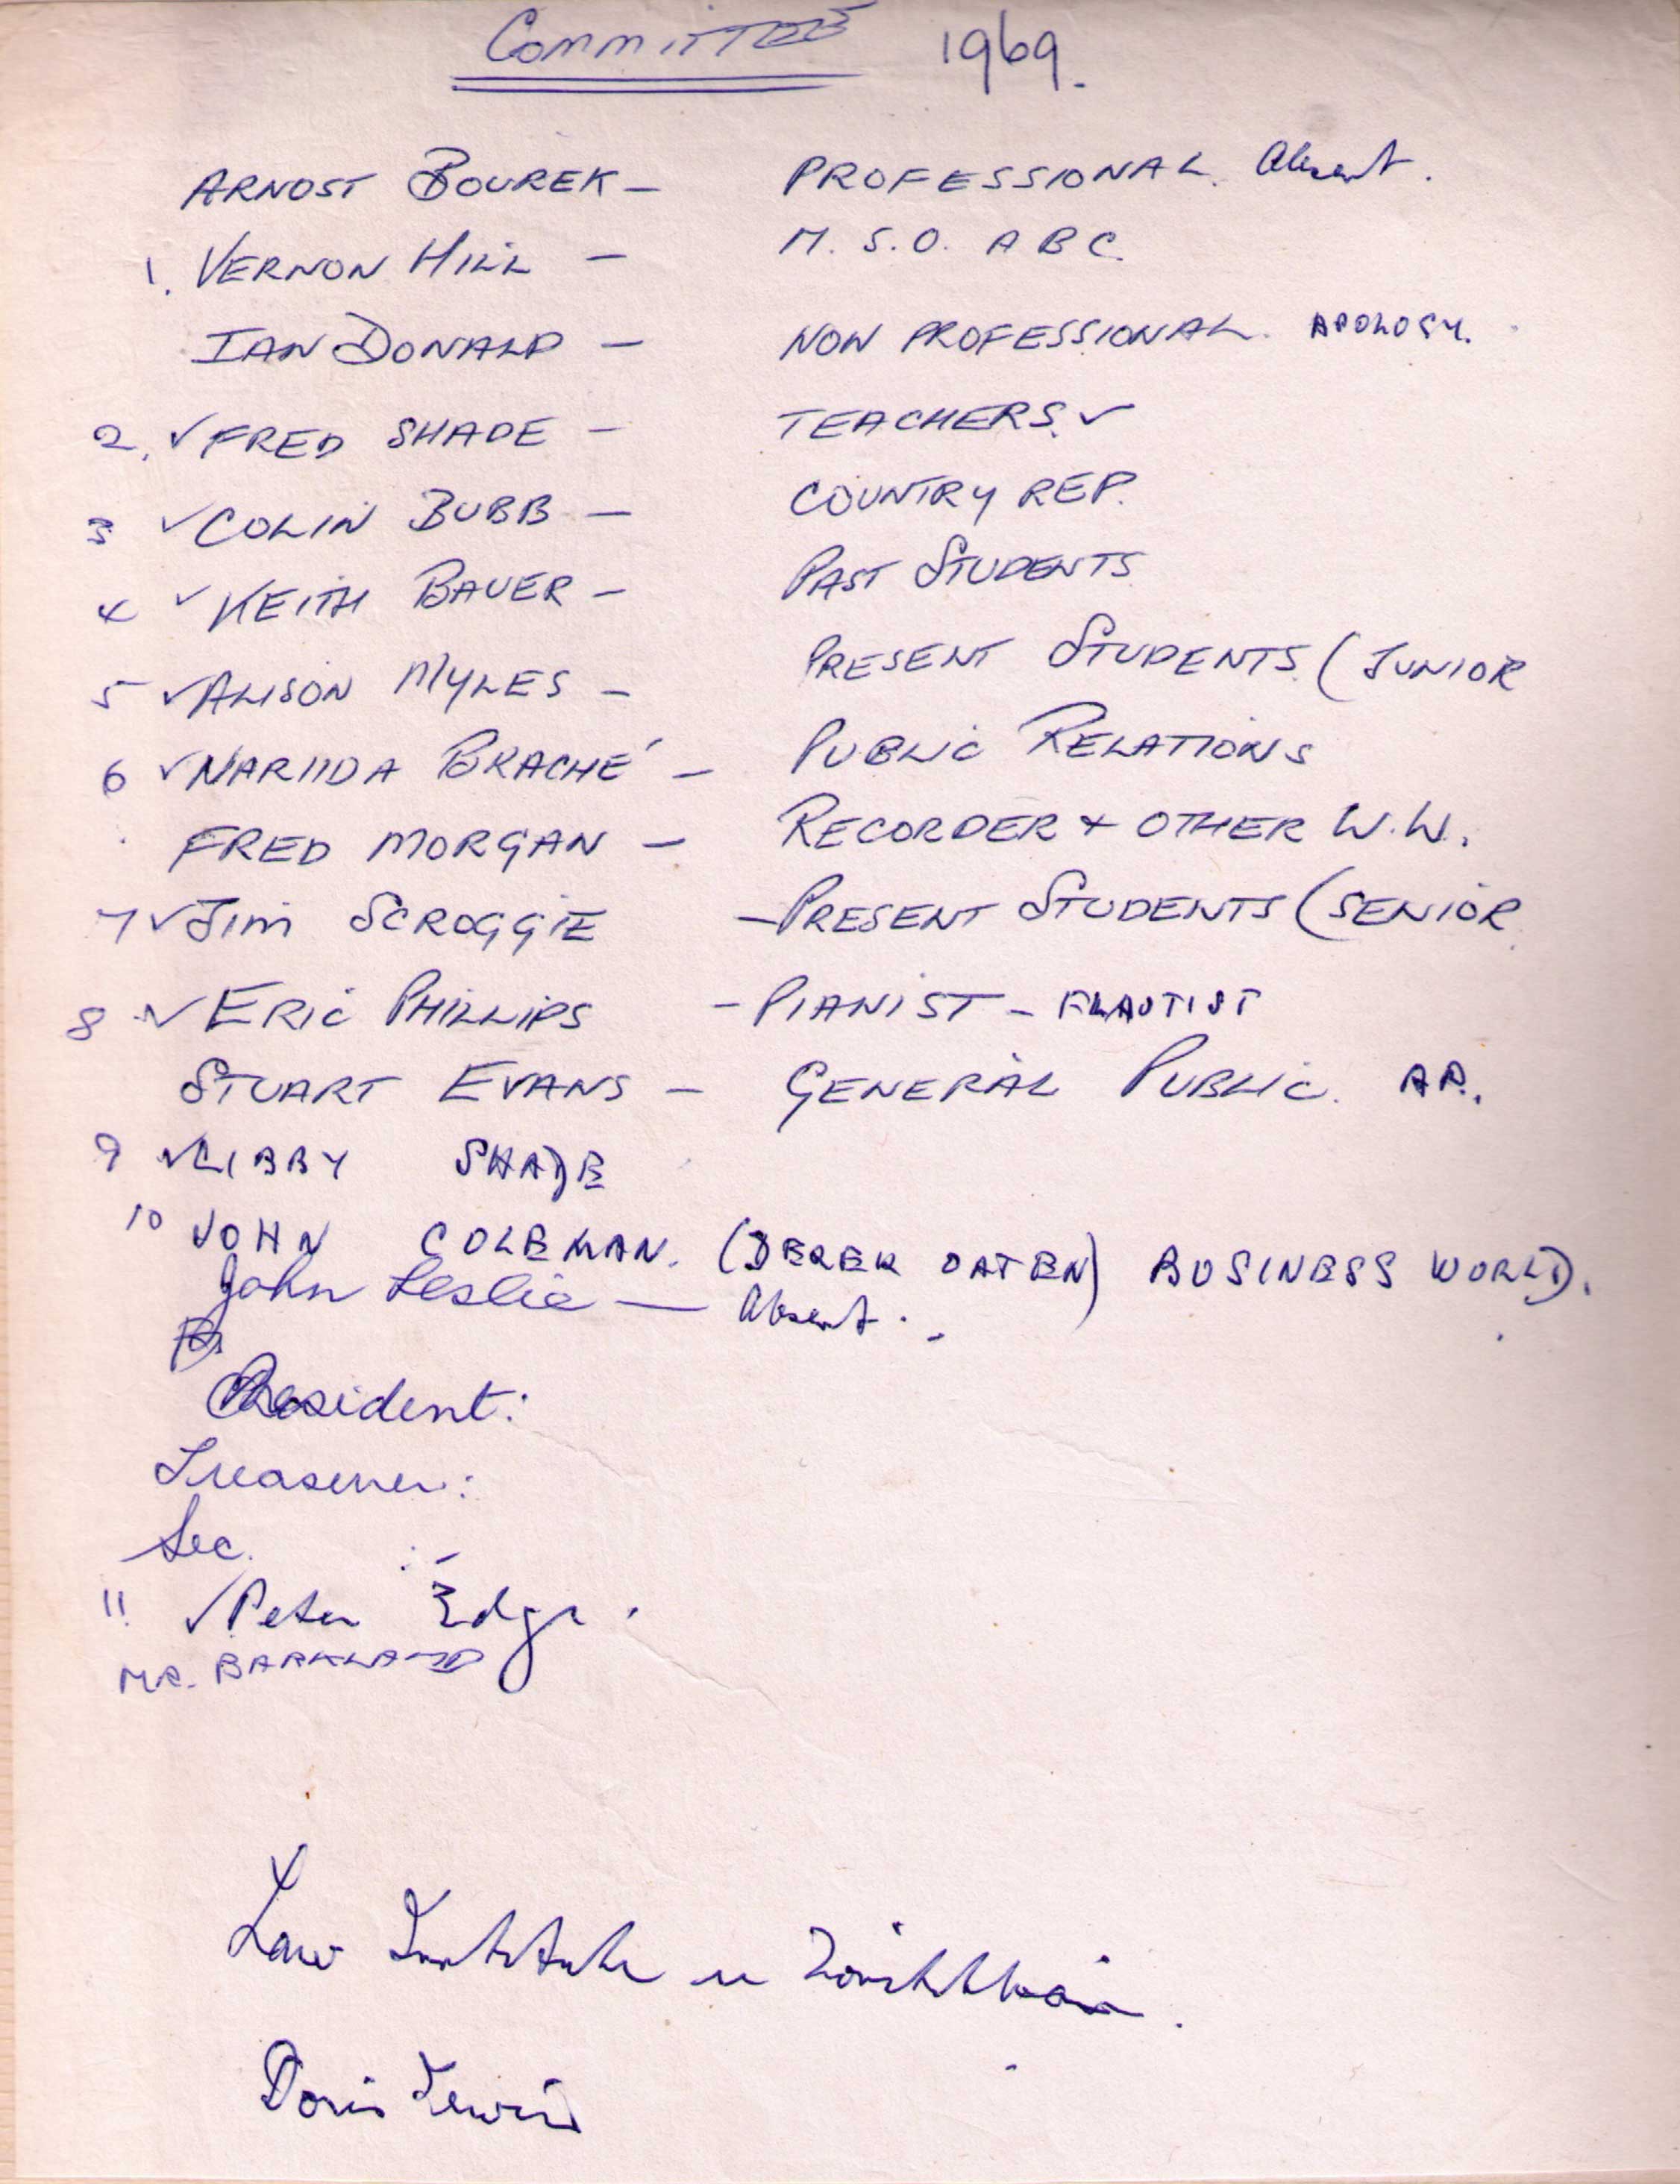 COMMITTEE 1969.
ARNOST BOUREK — PROFESSIONAL. Absent.
1. VERNON HILL — M.S.O. ABC.
IAN DONALD — NOW PROFESSIONAL. APOLOGY.
2. ✓ FRED SHADE — TEACHERS. ✓
3 ✓ COLIN BUBB — COUNTRY REP.
4 ✓ KEITH BAUER — PAST STUDENTS
5 ✓ ALISON MYLES — PRESENT STUDENTS. (JUNIOR
6 ✓ NARIIDA BRACHÉ — PUBLIC RELATIONS
FRED MORGAN — RECORDER + OTHER W.W.
7 ✓ JIM SCROGGIE — PRESENT STUDENTS (SENIOR
8 ✓ ERIC PHILLIPS — PIANIST — FLAUTIST
STUART EVANS — GENERAL PUBLIC. AP.
9 ✓ LIBBY SHADE
10 JOHN COLEMAN. (DEREK OATEN) BUSINESS WORLD.
John Leslie — Absent.
President:
Treasurer:
Sec. :-
11 ✓ Peter Edge.
MR. BARKLAND
Law Institute
Doris